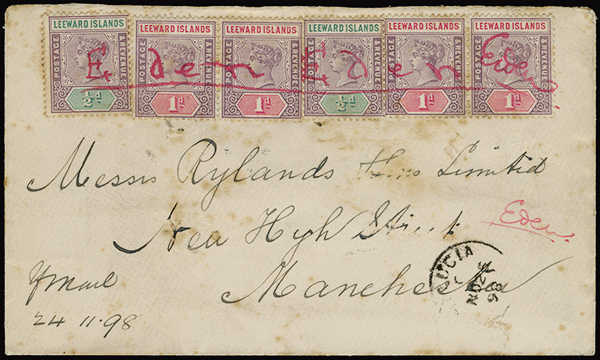 LEEWARD ISLANDS LEEWARD ISLANDS LEEWARD ISLANDS LEEWARD ISLANDS LEEWARD ISLANDS LEEWARD ISLANDS
POSTAGE & REVENUE POSTAGE & REVENUE POSTAGE & REVENUE POSTAGE & REVENUE POSTAGE & REVENUE POSTAGE & REVENUE
Eden Eden Eden
½d 1d 1d ½d 1d 1d
Messrs Rylands Limited
New High Street
Eden
Manchester
LUCIA
C
NO 25
98
24 11.98